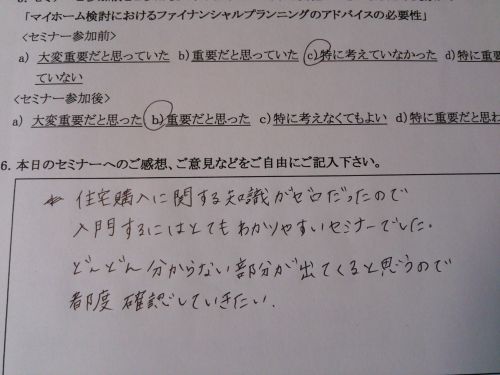 「マイホーム検討におけるファイナンシャルプランニングのアドバイスの必要性」
<セミナー参加前>
a) 大変重要だと思っていた b)重要だと思っていた c)特に考えていなかった d)特に重要
ていない
<セミナー参加後>
a) 大変重要だと思った b)重要だと思った c)特に考えなくてもよい d)特に重要だと思わ
6. 本日のセミナーへのご感想、ご意見などをご自由にご記入下さい。
住宅購入に関する知識がゼロだったので
入門するにはとてもわかりやすいセミナーでした.
どんどん分からない部分が出てくると思うので
都度確認していきたい.